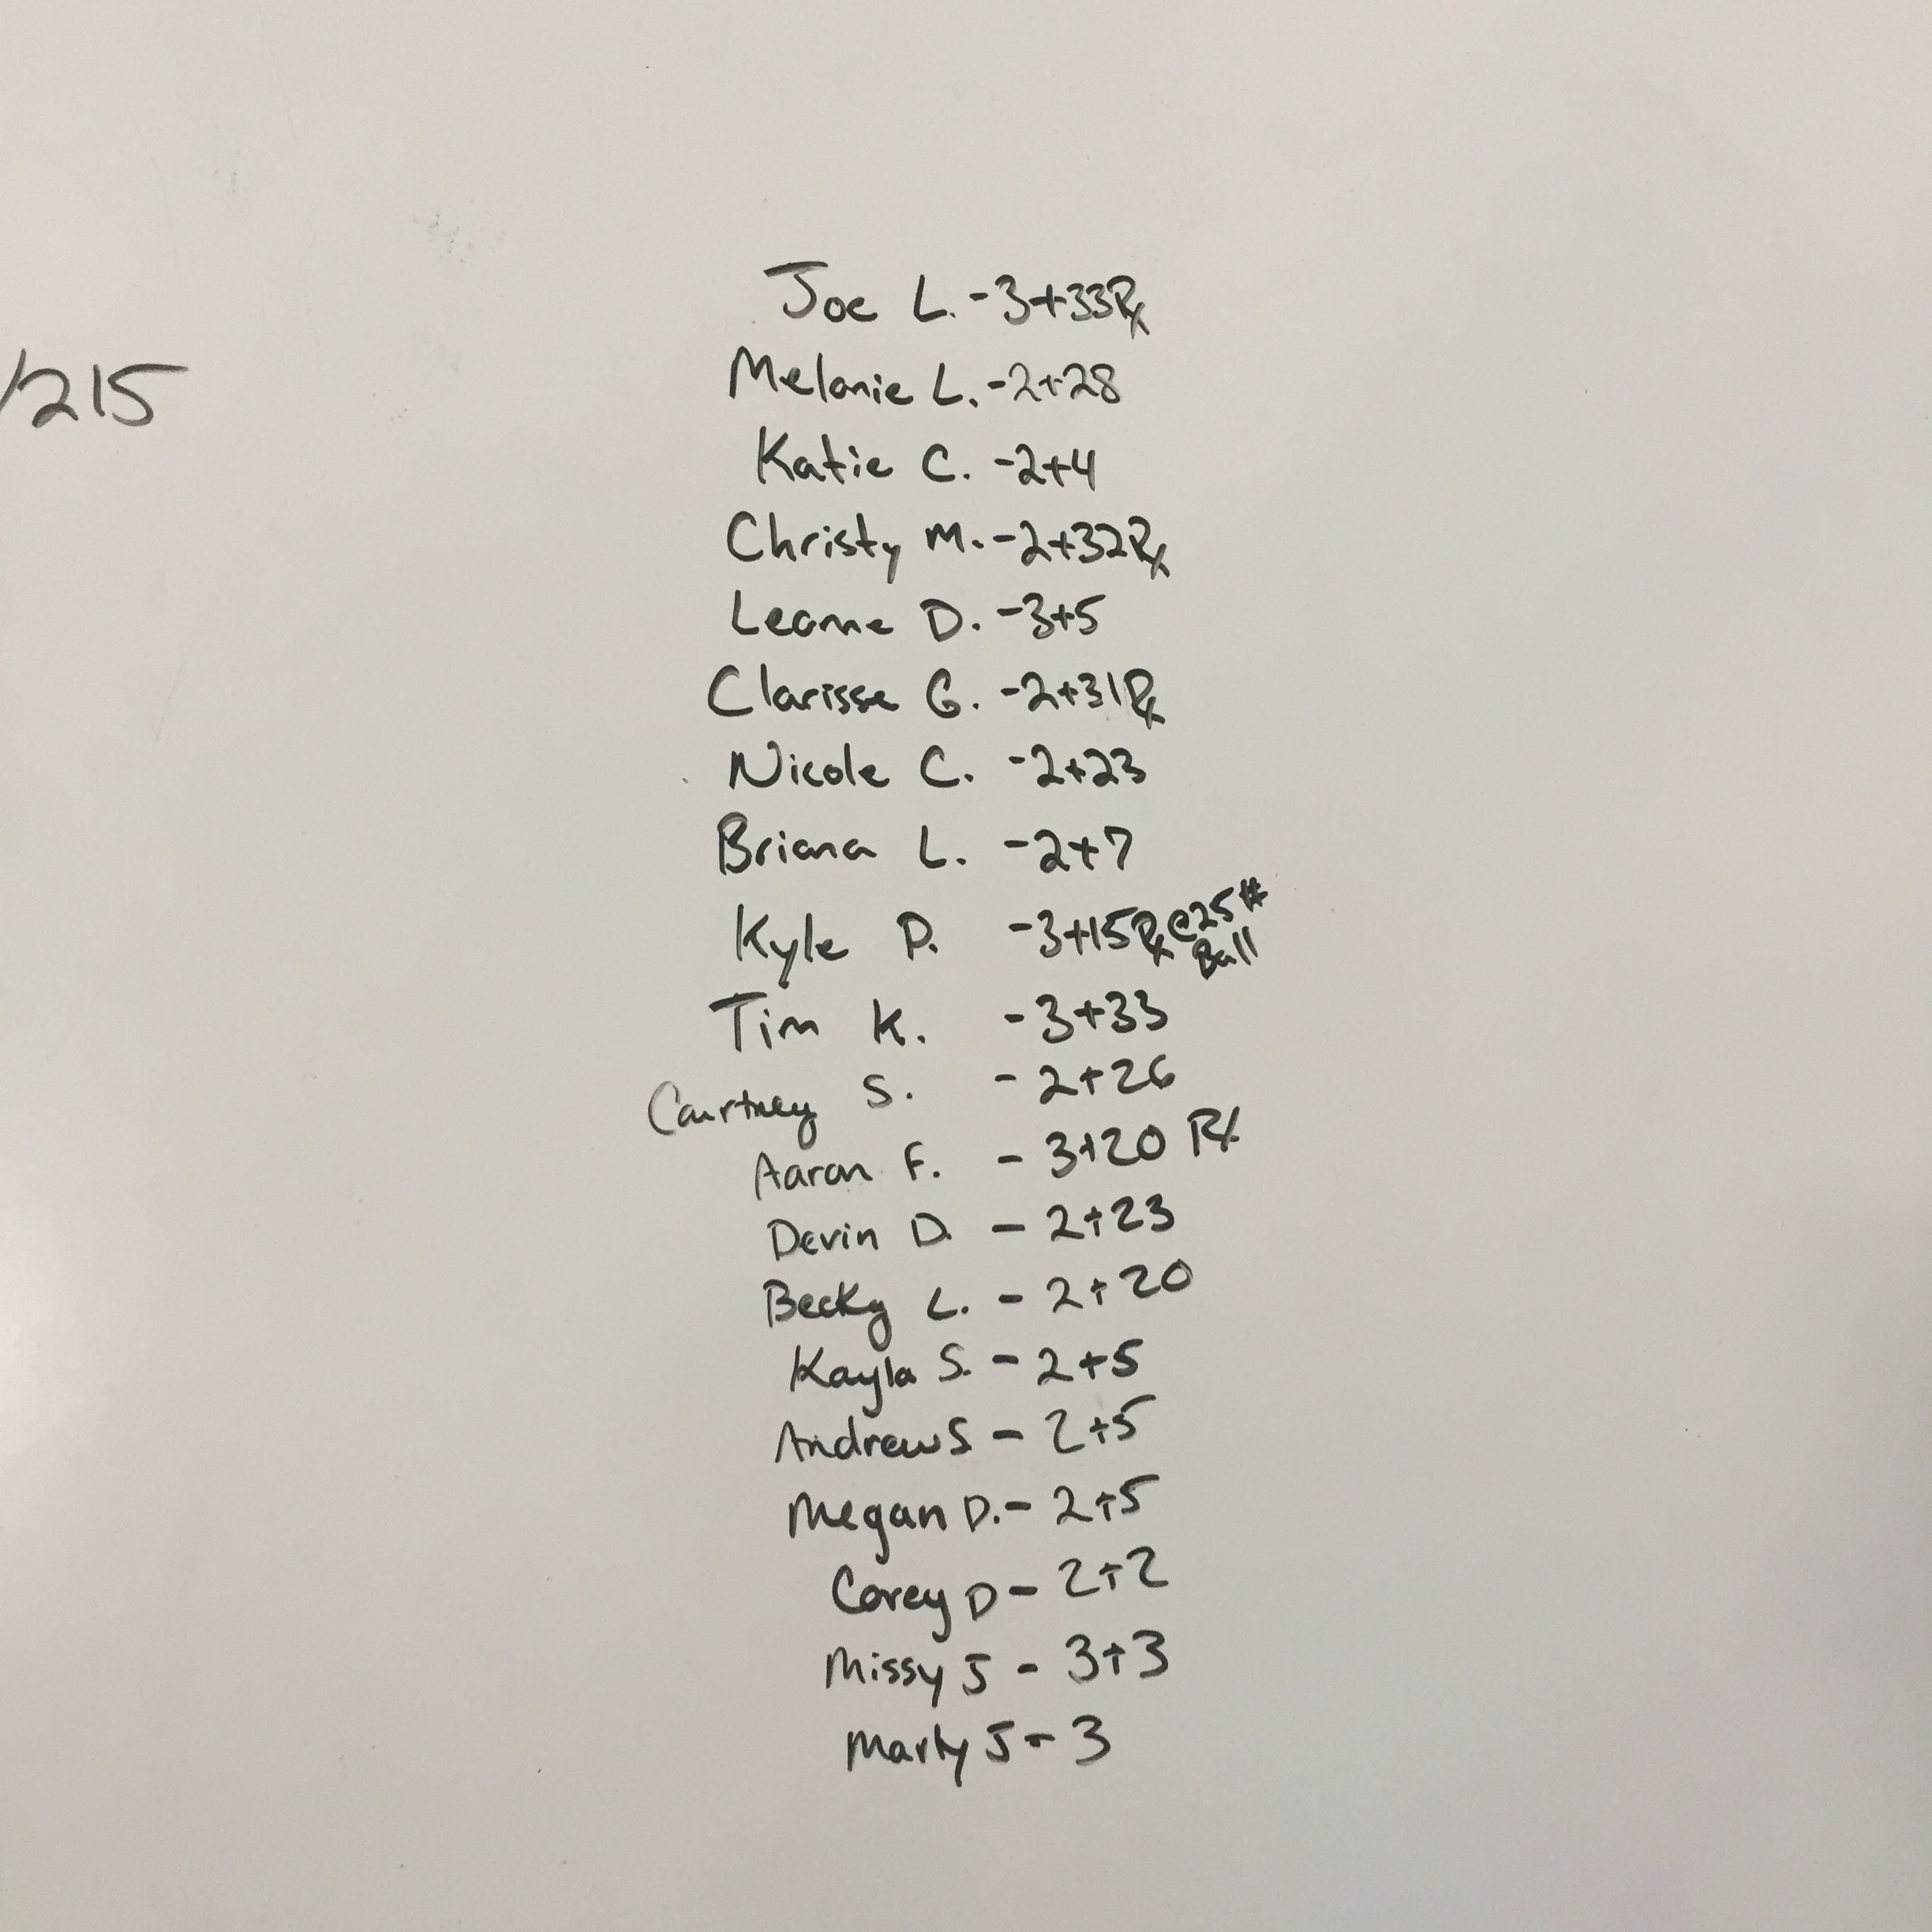 /215
Joe L. -3+33Rx
Melanie L. -2+28
Katie C. -2+4
Christy M. -2+32Rx
Leanne D. -3+5
Clarisse G. -2+31Rx
Nicole C. -2+23
Briana L. -2+7
Kyle P. -3+15Rx @25#
Ball
Tim K. -3+33
Courtney S. - 2+26
Aaron F. - 3+20 Rx
Devin D. - 2+23
Becky L. - 2+20
Kayla S. - 2+5
Andrew S - 2+5
Megan D. - 2+5
Corey D - 2+2
Missy J - 3+3
Marty J - 3